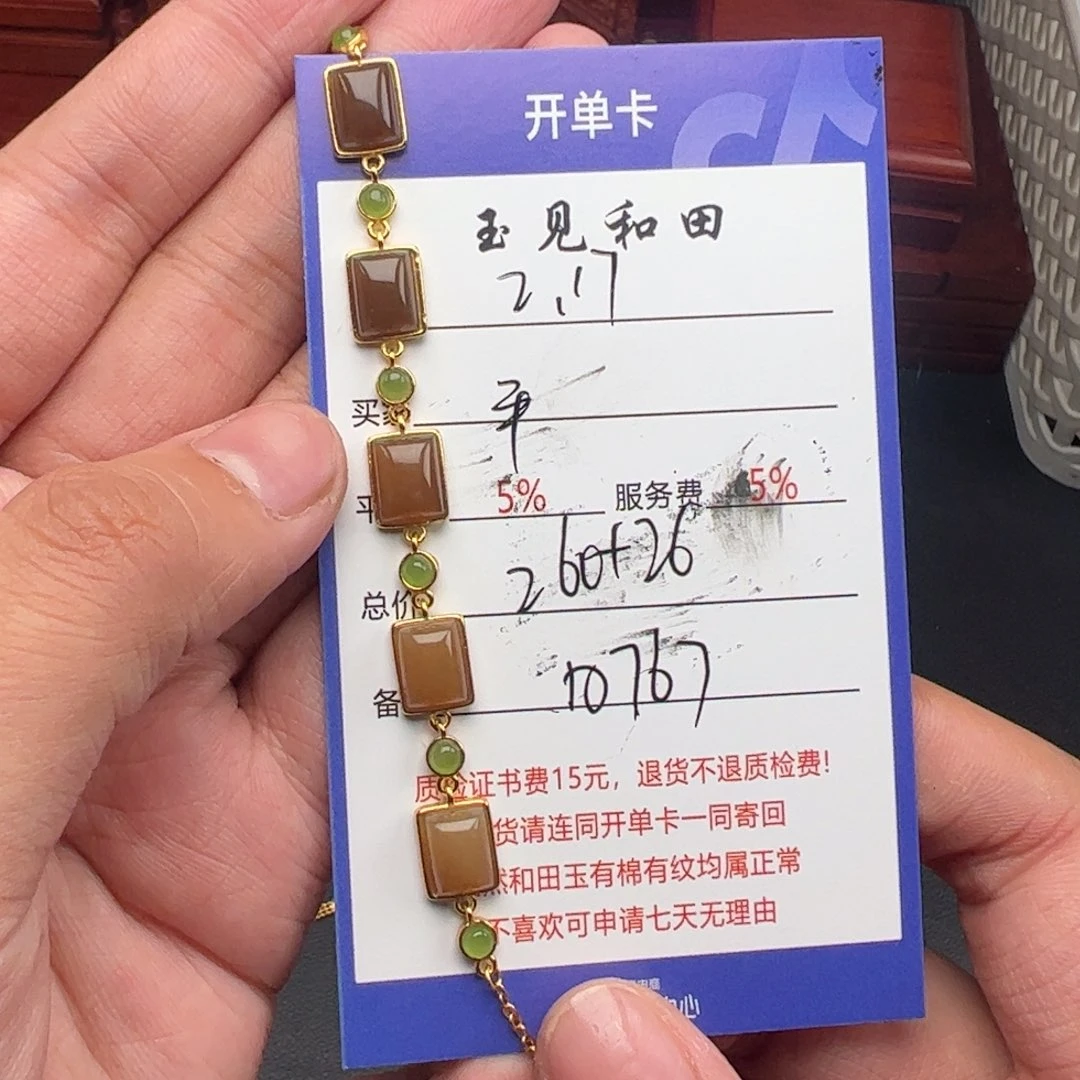 开单卡
玉见和田
2.17
买
平 5% 服务费 5%
总价 260+26
备 10767
质检证书费15元，退货不退质检费!
货请连同开单卡一同寄回
然和田玉有棉有纹均属正常
不喜欢可申请七天无理由
心